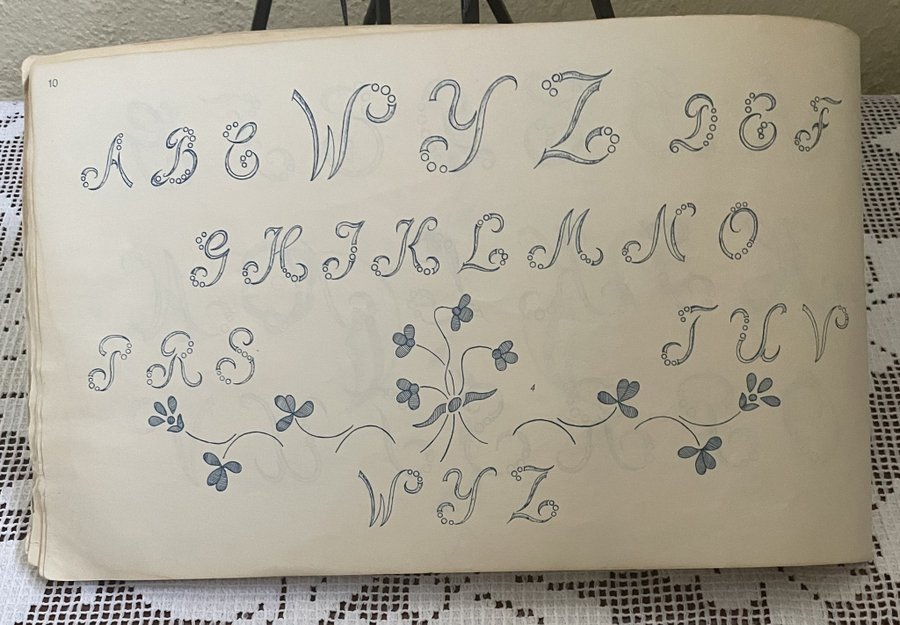 10
A B C W Y Z D E F
G H I K L M N O
P R S T U V
W Y Z